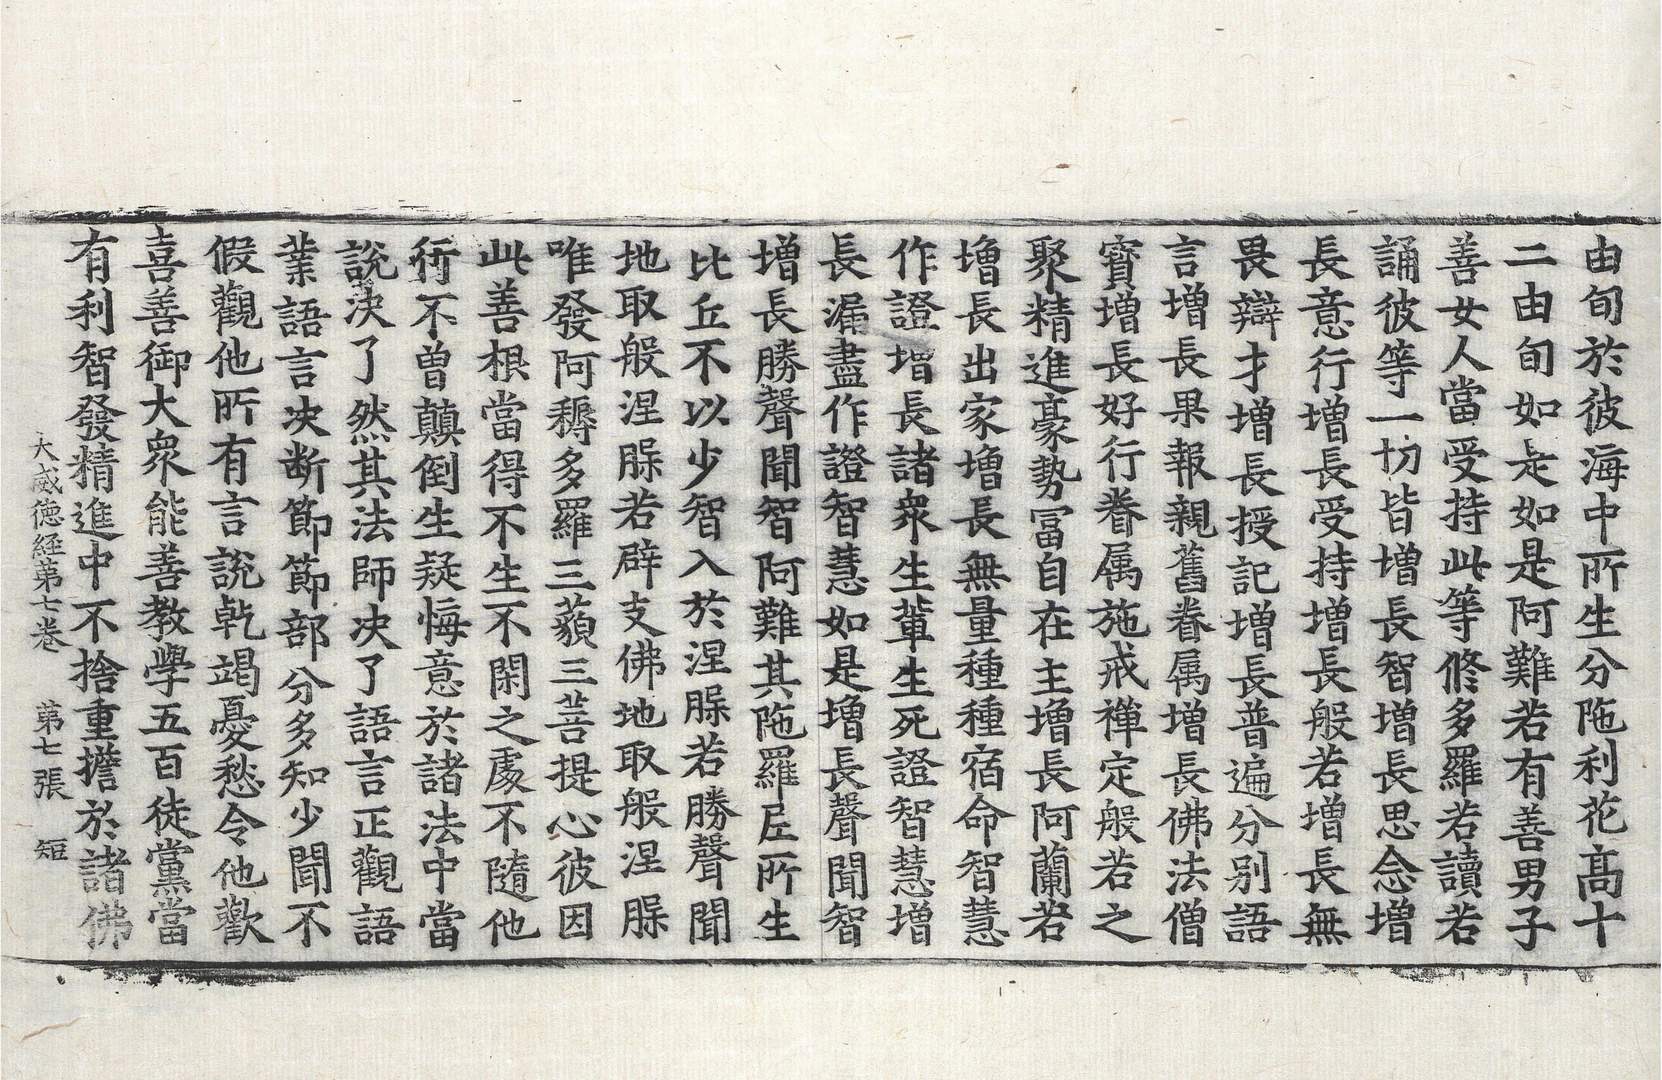 由旬於彼海中所生分陁利花髙十
二由旬如是如是阿難若有善男子
善女人當受持此等修多羅若讀若
誦彼等一切皆增長智增長思念增
長意行增長受持增長般若增長無
畏辯才增長授記增長普遍分別語
言增長果報親舊眷属增長佛法僧
寳增長好行眷属施戒禪定般若之
聚精進豪勢冨自在主增長阿蘭若
增長出家增長無量種種宿命智慧
作證增長諸衆生軰生死證智慧增
長漏盡作證智慧如是增長聲聞智
增長勝聲聞智阿難其陁羅尼所生
比丘不以少智入於涅槃若勝聲聞
地取般涅槃若辟支佛地取般涅槃
唯發阿耨多羅三藐三菩提心彼因
此善根當得不生不閑之處不隨他
行不曾顛倒生疑悔意於諸法中當
說决了然其法師决了語言正觀語
業語言决断節節部分多知少聞不
假觀他所有言說乹竭憂愁令他歡
喜善御大衆能善教學五百徒黨當
有利智發精進中不捨重擔於諸佛
大威徳経第七卷　第七張　短